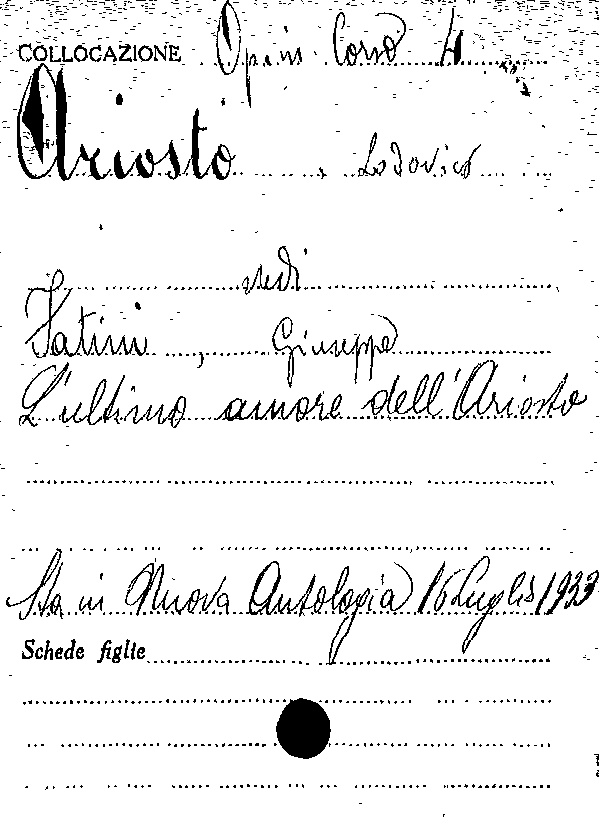 COLLOCAZIONE Opus. Corso 4
Ariosto, Lodovico
vedi
Fatini, Giuseppe
L'ultimo amore dell'Ariosto
Sta in Nuova Antologia 16 Luglio 1933
Schede figlie